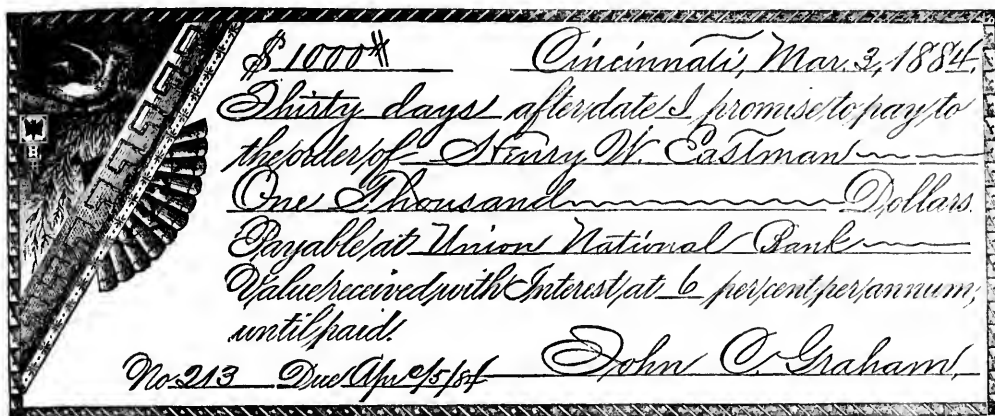 $1000# Cincinnati, Mar. 3, 1884.
Thirty days after date I promise to pay to
the order of Henry W. Eastman
One Thousand Dollars
Payable at Union National Bank
Value received with Interest at 6 per cent per annum,
until paid.
No. 213 Due Apr 2/5/84 John C. Graham,